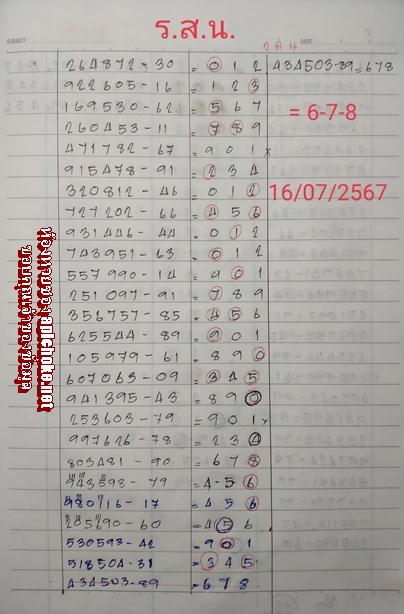 ร.ส.น.
SUBJECT
DATE
264872 - 30 = 0 1 2
434503-89=678
922605 - 16 = 1 2 3
169530 - 62 = 5 6 7
= 6-7-8
260453 - 11 = 7 8 9
471782 - 67 = 9 0 1 x
915478 - 91 = 2 3 4
320812 - 46 = 0 1 2
16/07/2567
727202 - 66 = 4 5 6
931446 - 44 = 0 1 2
743951 - 63 = 0 1 2
557990 - 14 = 9 0 1
251097 - 91 = 7 8 9
356757 - 85 = 4 5 6
625544 - 89 = 9 0 1
105979 - 61 = 8 9 0
607063 - 09 = 3 4 5
941395 - 43 = 8 9 0
253603 - 79 = 9 0 1 x
997626 - 78 = 2 3 4
803481 - 90 = 6 7 8
943598 - 79 = 4-5 6
980116 - 17 = 4 5 6
285690 - 60 = 4 5 6
530593 - 42 = 9 0 1
518504 - 31 = 3 4 5
434503-89 = 6 7 8